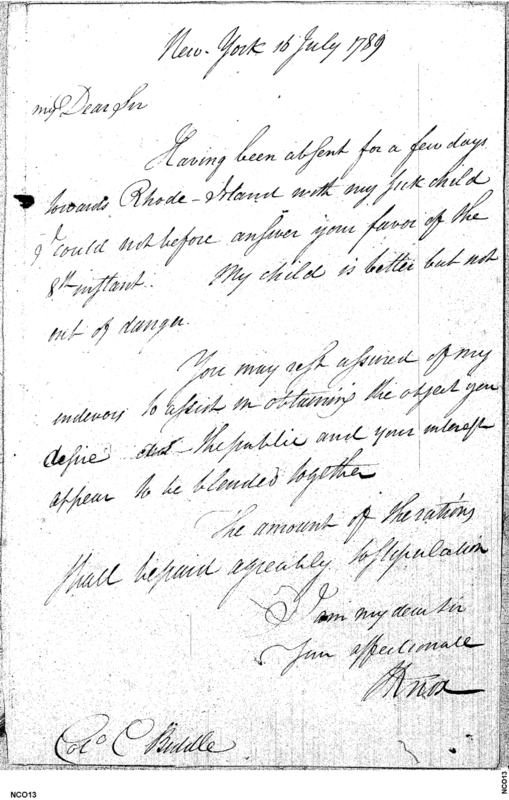 New-York 16 July 1789
my Dear Sir
Having been absent for a few days
towards Rhode-Island with my sick child
I could not before answer your favor of the
8th instant. My child is better but not
out of danger.
You may rest assured of my
endevors to assist in obtaining the object you
desire the public and your interest
appear to be blended together
The amount of the rations
shall be paid agreably to stipulation
I am my dear sir
Your affectionate
HKnox
Colo C Biddle
NCO13
NCO13